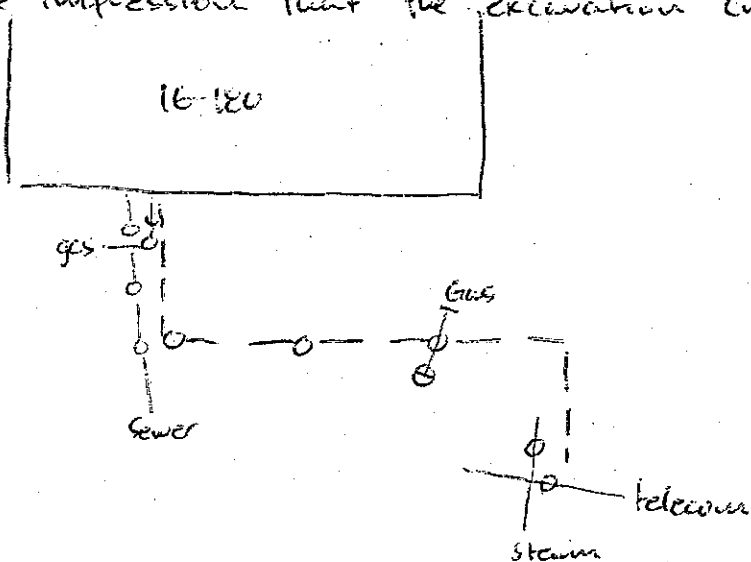 impression that the excavation
16-180
gas
Gas
Sewer
telecom
steam